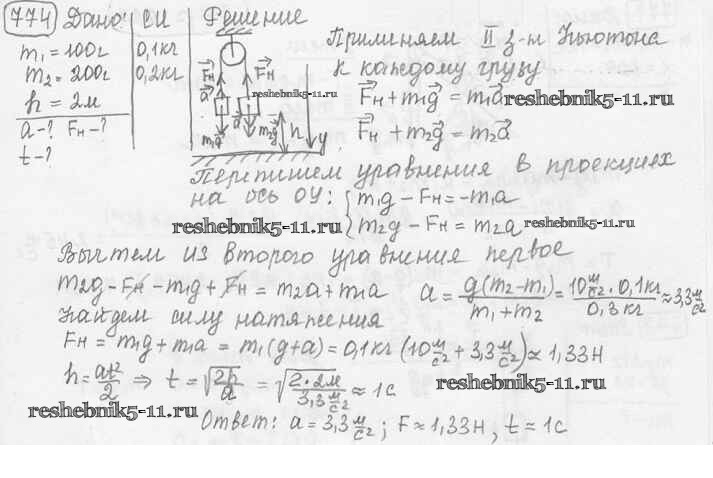 774 Дано СИ Решение
m₁ = 100г 0,1кг
m₂ = 200г 0,2кг
h = 2м
a-? Fн-?
t-?
Fн Fн
a
a
m₁g m₂g h y
reshebnik5-11.ru
Применяем II з-н Ньютона
к каждому грузу
Fн + m₁g = m₁a reshebnik5-11.ru
Fн + m₂g = m₂a
Перепишем уравнения в проекциях
на ось OY: { m₁g - Fн = -m₁a
m₂g - Fн = m₂a
reshebnik5-11.ru reshebnik5-11.ru
Вычтем из второго уравнения первое
m₂g - Fн - m₁g + Fн = m₂a + m₁a a = g(m₂-m₁)/(m₁+m₂) = 10 м/с² · 0,1кг / 0,3 кг ≈ 3,3 м/с²
Найдем силу натяжения
Fн = m₁g + m₁a = m₁(g+a) = 0,1кг (10 м/с² + 3,3 м/с²) ≈ 1,33 Н
h = at²/2 ⇒ t = √(2h/a) = √(2·2м / 3,3 м/с²) ≈ 1с reshebnik5-11.ru
reshebnik5-11.ru
Ответ: a = 3,3 м/с² ; F ≈ 1,33Н , t ≈ 1с